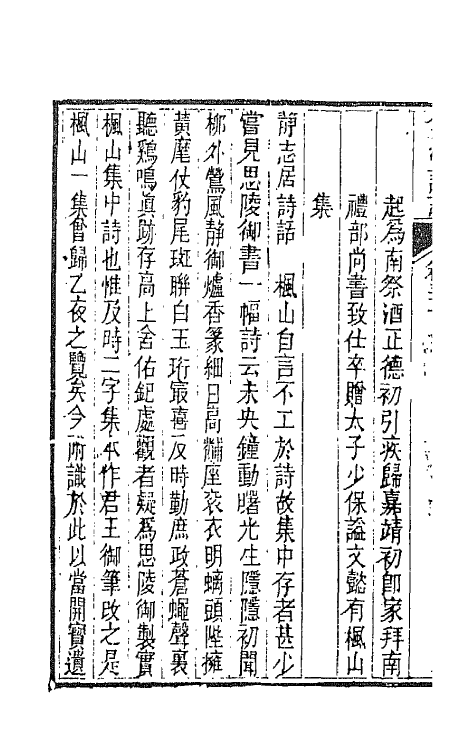 起為南祭酒正德初引疾歸嘉靖初即家拜南
禮部尚書致仕卒贈太子少保謚文懿有楓山
集
靜志居詩話　楓山自言不工於詩故集中存者甚少
嘗見思陵御書一幅詩云未央鐘動曙光生隱隱初聞
柳外鶯風靜御爐香篆細日高黼座袞衣明螭頭陛擁
黃麾仗豹尾班聯白玉珩最喜及時勤庶政蒼蠅聲裏
聽鷄鳴眞跡存高上舍佑釲處觀者疑為思陵御製實
楓山集中詩也惟及時二字集本作君王御筆改之是
楓山一集曾歸乙夜之覽矣今附識於此以當開寶遺